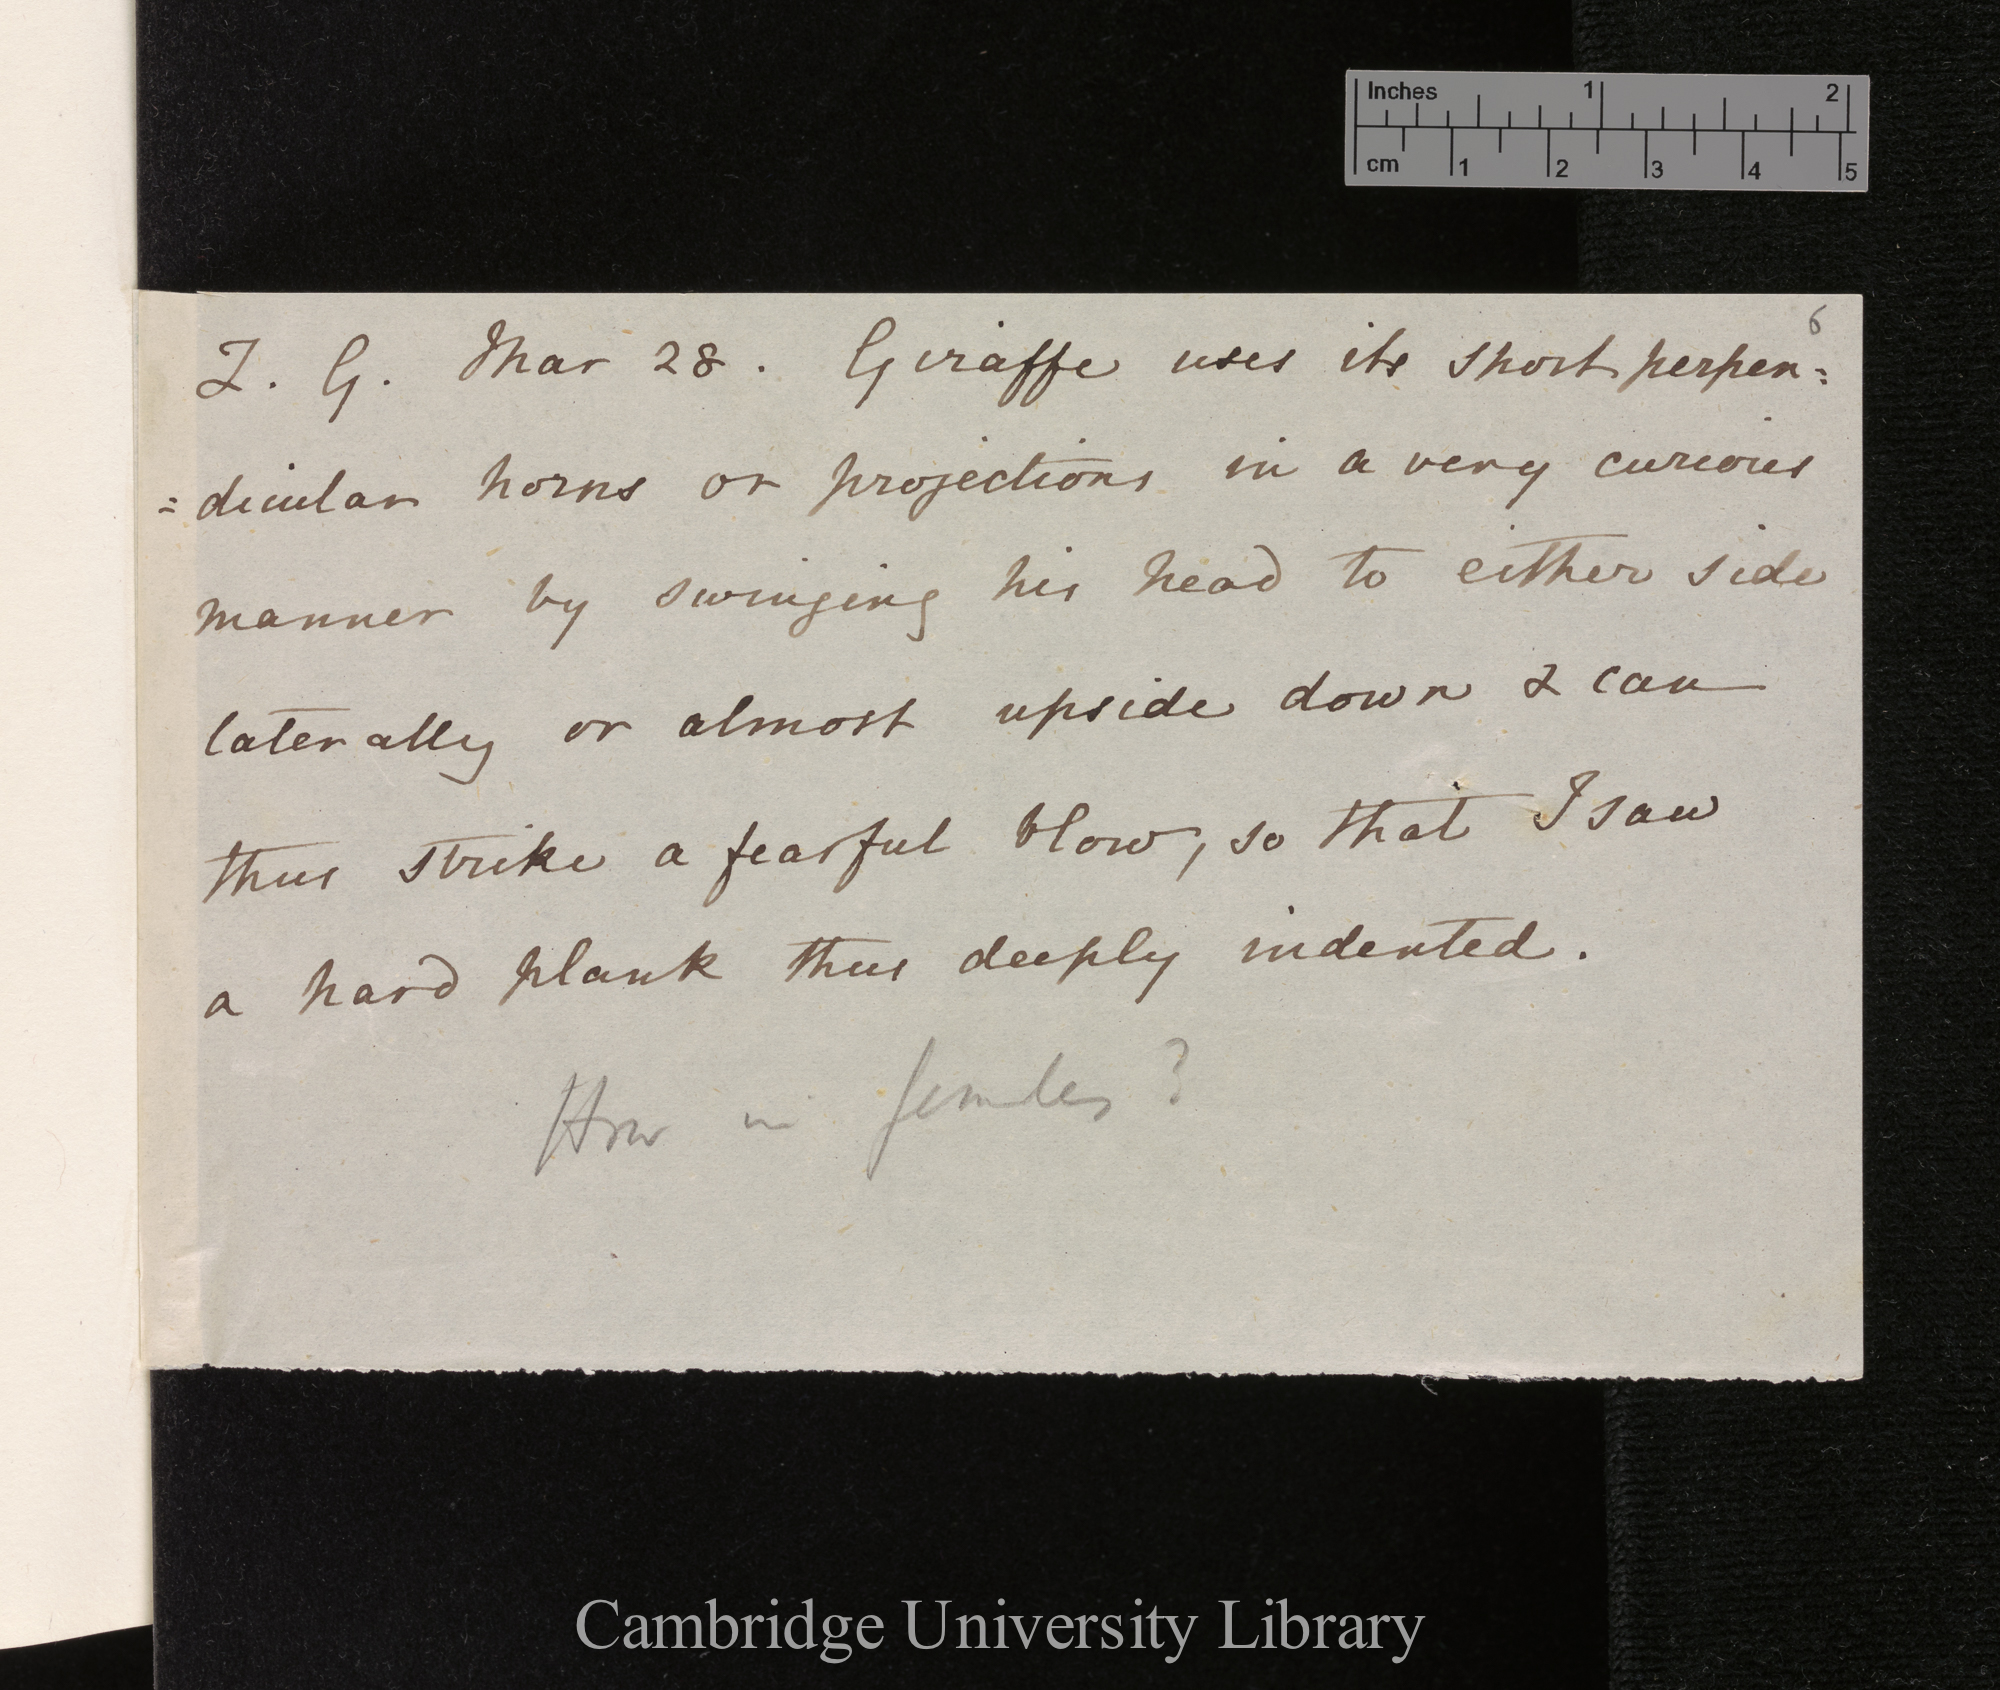 Inches 1 2
cm 1 2 3 4 5
6
Z. G. Mar 28. Giraffe uses its short perpen=
=dicular horns or projections in a very curious
manner by swinging his head to either side
laterally or almost upside down & can
thus strike a fearful blow, so that I saw
a hard plank thus deeply indented.
How in females?
Cambridge University Library